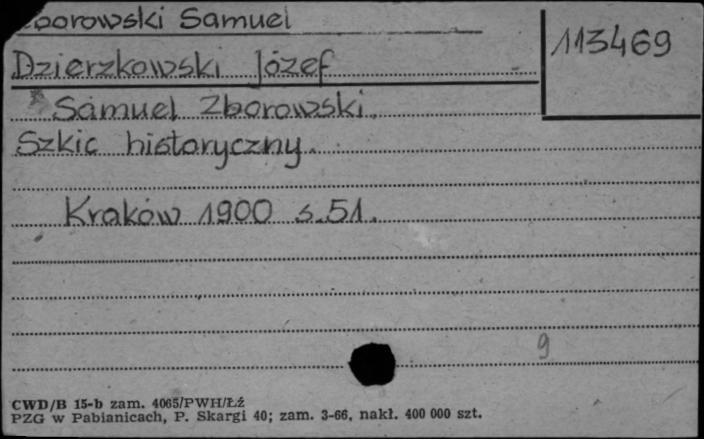 Zborowski Samuel
113469
Dzierzkowski Józef
Samuel Zborowski.
Szkic historyczny.
Kraków 1900 s. 51.
9
CWD/B 15-b zam. 4065/PWH/Łź
PZG w Pabianicach, P. Skargi 40; zam. 3-66, nakł. 400 000 szt.